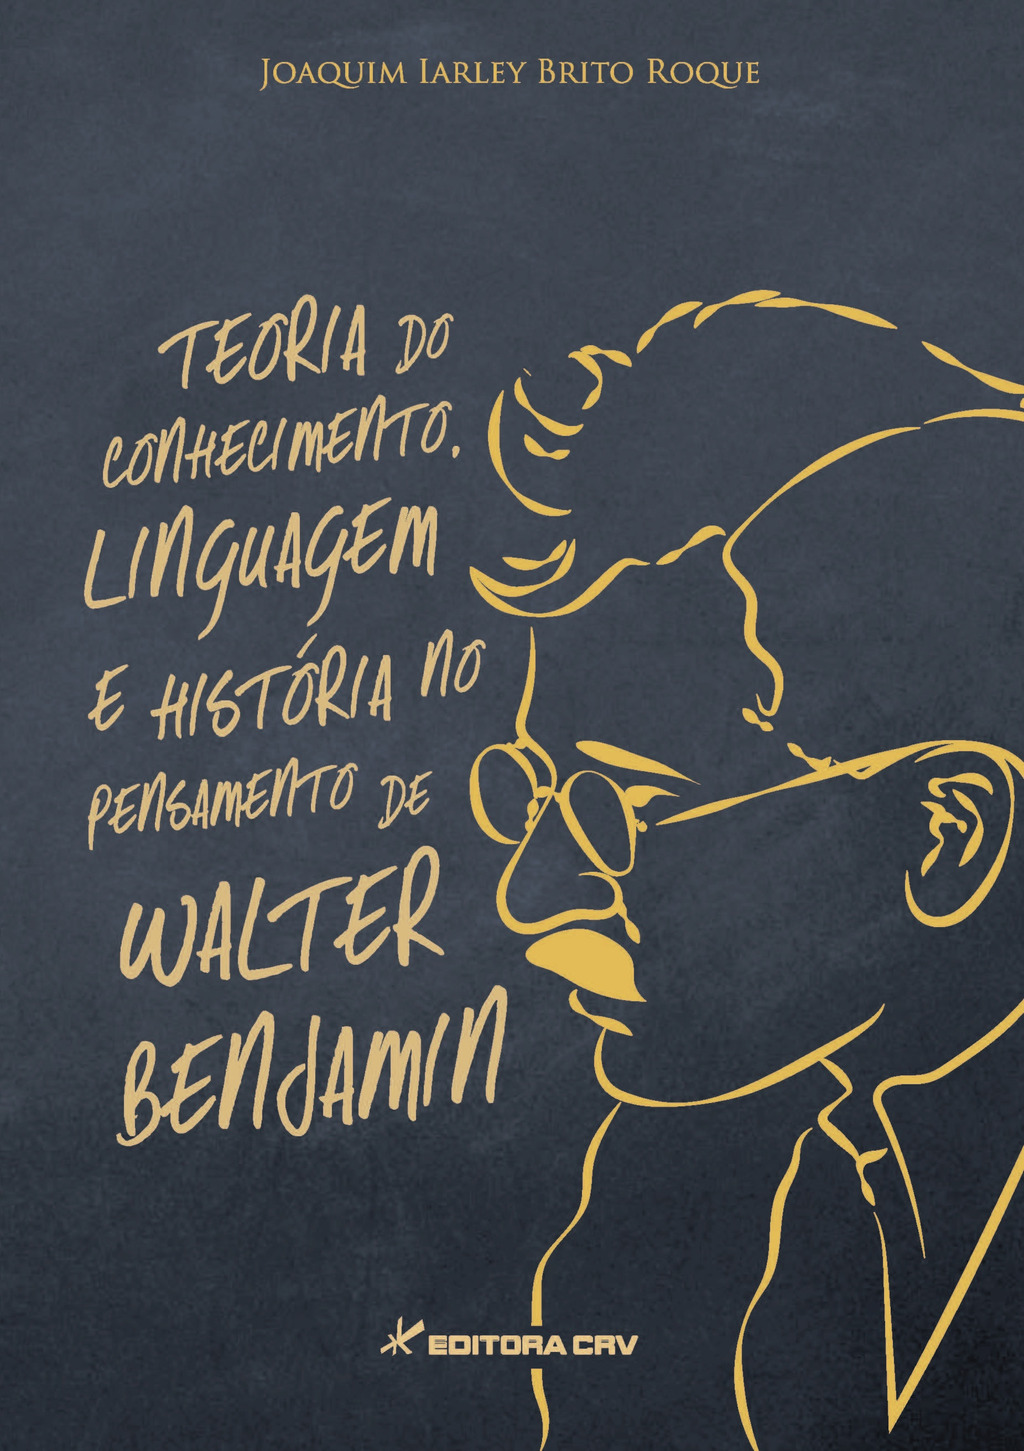 JOAQUIM IARLEY BRITO ROQUE
TEORIA DO
CONHECIMENTO,
LINGUAGEM
E HISTÓRIA NO
PENSAMENTO DE
WALTER
BENJAMIN
EDITORA CRV